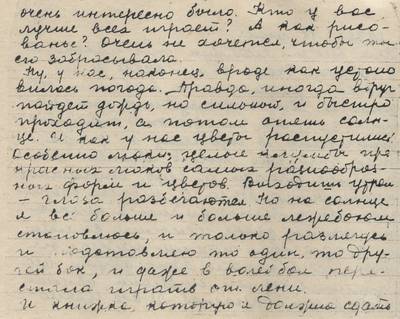 очень интересно было. Кто у вас
лучше всех играет? А как рисо-
ванье? Очень не хочется, чтобы ты
его забрасывала.
Ну, у нас, наконец, вроде как устано
вилась погода. Правда, иногда вдруг
пойдет дождь, но сильный, и быстро
проходит, а потом опять солн-
це. А как у нас цветы распустились
особенно маки, целые клумбы пре
красных маков самых разнообраз-
ных форм и цветов. Выходишь утром
– глаза разбегаются. Но на солнце
я все больше и больше лежебокой
становлюсь, и только разлягусь
и подставляю то один, то дру-
гой бок, и даже в волейбол пере-
стала играть от лени.
И книжка, которую я должна сдать